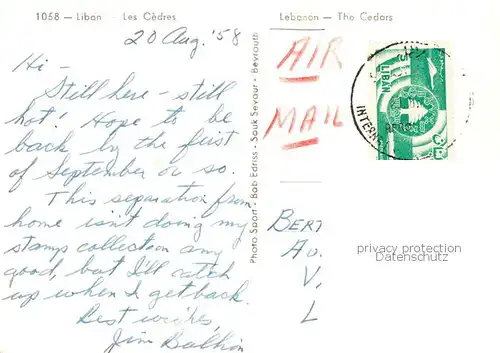 1058 — Liban - Les Cèdres
Lebanon — The Cedars
20 Aug. '58
Hi —
Still here — still
hot! Hope to be
back by the first
of September or so.
This separation from
home isn't doing my
stamps collection any
good, but I'll catch
up when I get back.
Best wishes,
Jim
Photo Sport - Bab Edriss - Souk Seyour - Beyrouth
AIR
MAIL
LIBAN
BERT
V,
L
privacy protection
Datenschutz